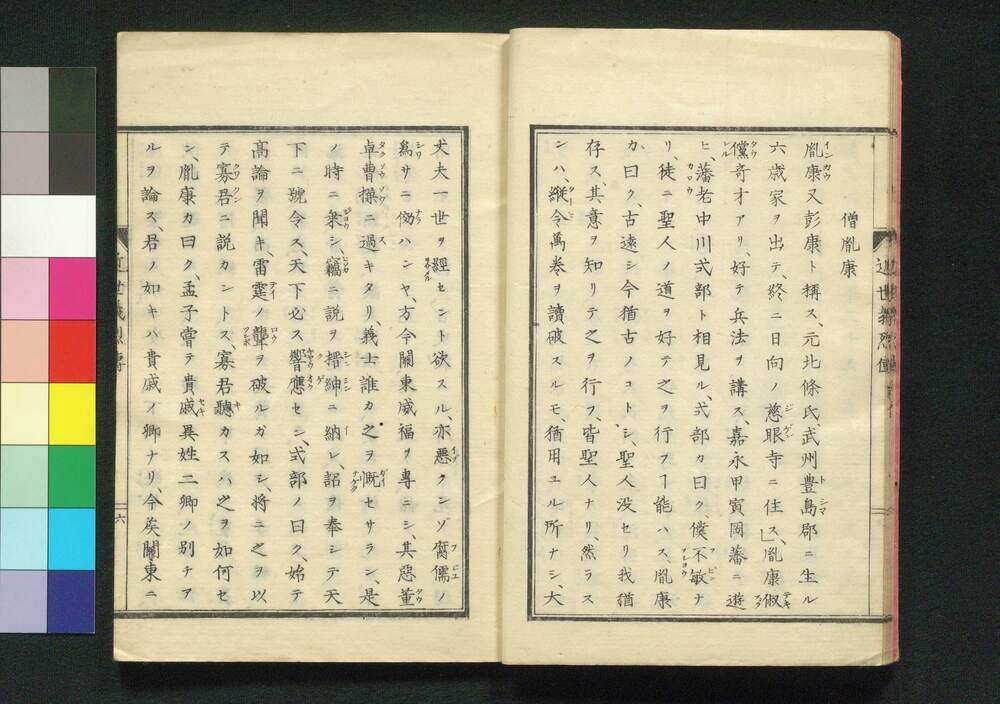 僧胤康
胤康又彭康ト稱ス、元北條氏、武州豊島郡ニ生ル
六歳家ヲ出テ、終ニ日向ノ慈眼寺ニ住ス」胤康俶
儻奇才アリ、好テ兵法ヲ講ス、嘉永甲寅岡藩ニ遊
ヒ、藩老中川式部ト相見ル、式部カ曰ク、僕不敏ナ
リ、徒ニ聖人ノ道ヲ好テ之ヲ行フヿ能ハス、胤康
カ曰ク、古遠シ今猶古ノコトシ、聖人没セリ我猶
存ス、其意ヲ知リテ之ヲ行フ、皆聖人ナリ、然ラス
ンハ、縦令萬巻ヲ讀破スルモ、猶用ユル所ナシ、大
丈夫一世ヲ經セント欲スル、亦悪クンゾ腐儒ノ
爲サニ傚ハンヤ、方今關東威福ヲ專ニシ、其惡董
卓曹操ニ過キタリ、義士誰カ之ヲ慨セサラン、是
ノ時ニ乗シ、竊ニ説ヲ搢紳ニ納レ、詔ヲ奉シテ天
下ニ號令ス、天下必ス響應セシ、式部ノ曰ク、始テ
高論ヲ聞キ、雷霆ノ聾ヲ破ルガ如シ、將ニ之ヲ以
テ寡君ニ説カントス、寡君聽カスハ之ヲ如何セ
ン、胤康カ曰ク、孟子嘗テ貴戚異姓二卿ノ別チア
ルヲ論ス、君ノ如キハ貴戚ノ卿ナリ、今矦關東ニ
近世義烈傳
六